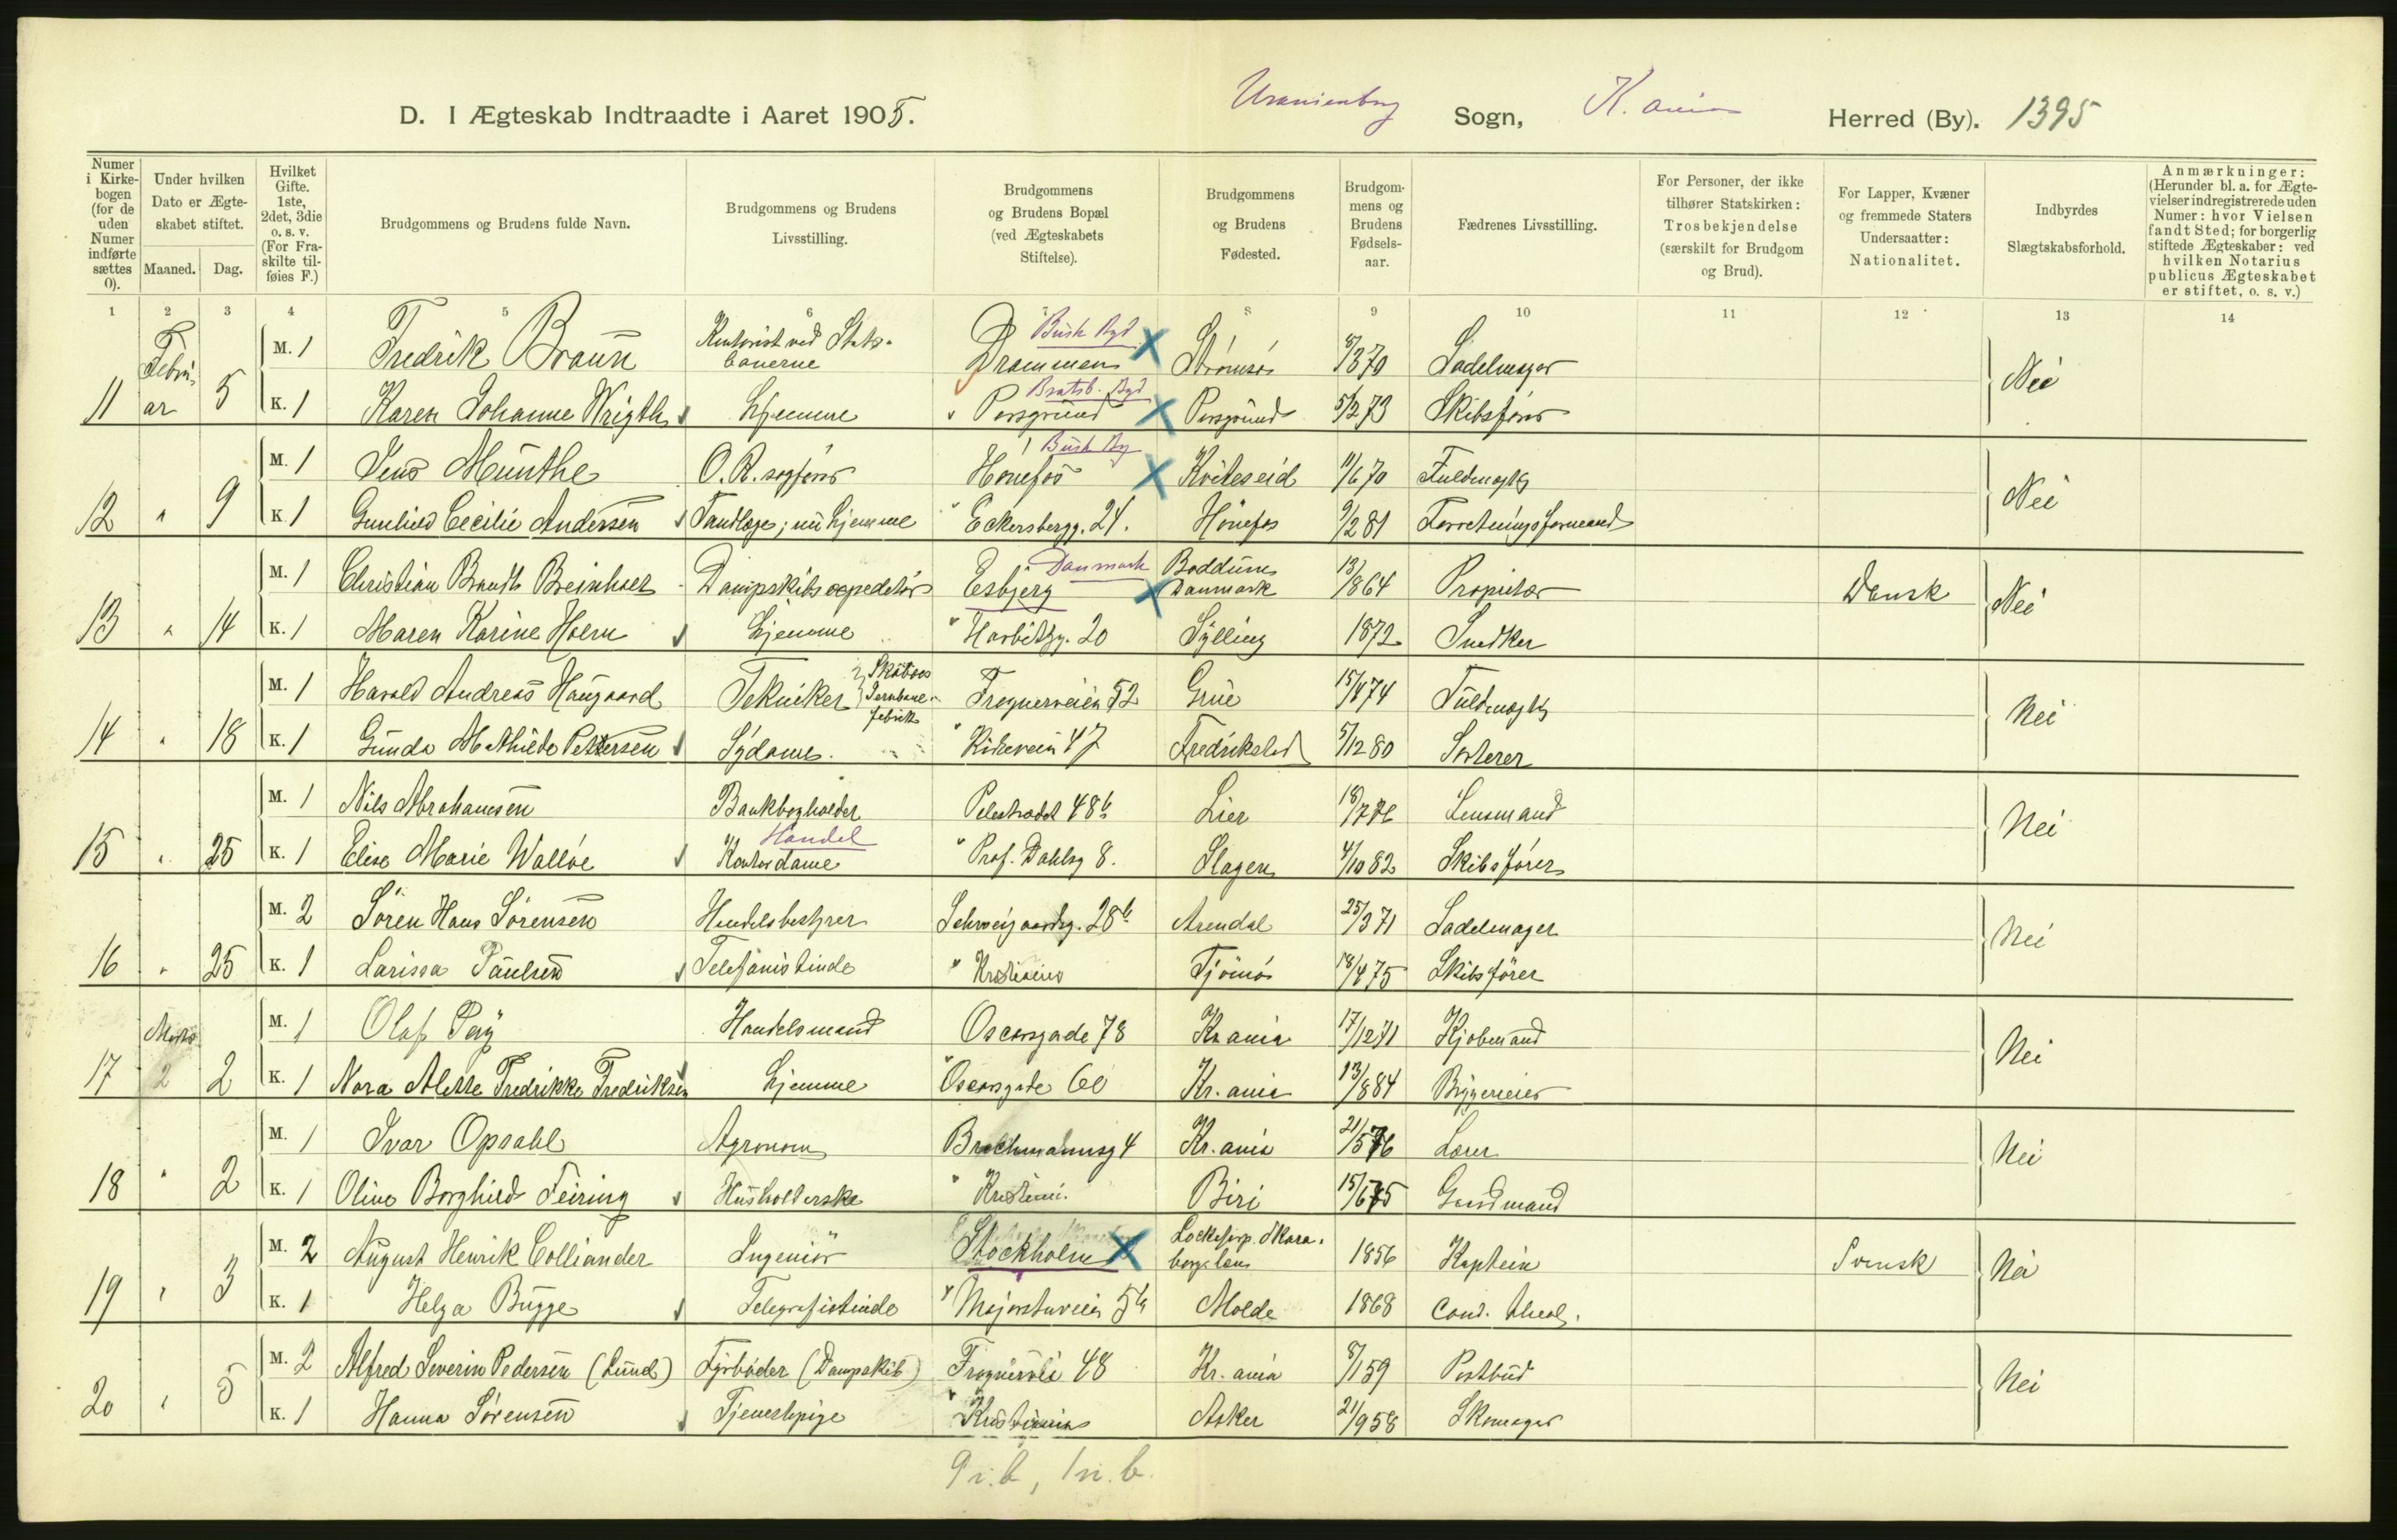 D. I Ægteskab Indtraadte i Aaret 1905. Uranienborg Sogn, K.ania Herred (By). 1395
Numer i Kirkebogen (for de uden Numer indførte sættes 0).
Under hvilken Dato er Ægteskabet stiftet.
Maaned. Dag.
Hvilket Gifte. 1ste, 2det, 3die o. s. v. (For Fraskilte tilføies F.)
Brudgommens og Brudens fulde Navn.
Brudgommens og Brudens Livsstilling.
Brudgommens og Brudens Bopæl (ved Ægteskabets Stiftelse).
Brudgommens og Brudens Fødested.
Brudgommens og Brudens Fødselsaar.
Fædrenes Livsstilling.
For Personer, der ikke tilhører Statskirken: Trosbekjendelse (særskilt for Brudgom og Brud).
For Lapper, Kvæner og fremmede Staters Undersaatter: Nationalitet.
Indbyrdes Slægtskabsforhold.
Anmærkninger: (Herunder bl. a. for Ægtevielser indregistrerede uden Numer: hvor Vielsen fandt Sted; for borgerlig stiftede Ægteskaber: ved hvilken Notarius publicus Ægteskabet er stiftet, o. s. v.)
1 2 3 4 5 6 8 9 10 11 12 13 14
Februar M. 1 Fredrik Braun Kontorist ved Statsbanerne Drammen Busk Byd Strømsø 8/3 70 Sadelmager Nei
11 5 K. 1 Karen Johanne Wrigth Hjemme Porsgrund Bratsb. Byd Porsgrund 5/2 73 Skibsfører
M. 1 Jens Munthe O.R. sagfører Hønefos Busk By Kviteseid 11/6 70 Fuldmægtig Nei
12 " 9 K 1 Gunhild Cecilie Andersen Tandlæge; nu hjemme Eckersbergg. 24. Hønefos 9/2 81 Forretningsformand
M. 1 Christian Brandt Dampskibsexpeditør Esbjerg Danmark Boddum Danmark 13/8 64 Propritær Dansk Nei
13 " 14 K. 1 Maren Karine Holm Hjemme Harbitzg. 20 Sylling 1872 Snedker
M. 1 Harald Andreas Haugaard Tekniker Skabos Jernbanefabrik Frognerveien 52 Grue 15/4 74 Fuldmægtig Nei
14 " 18 K. 1 Gunda Mathilde Pettersen Sydame Kirkevein 47 Fredrikstad 5/12 80 Sorterer
M. 1 Nils Abrahamsen Bankbogholder Pilestrædet 48b Lier 18/7 76 Lensmand Nei
15 " 25 K. 1 Elise Marie Walløe Kontordame Handel Prof. Dahlsg 8. Slagen 4/10 82 Skibsfører
M. 2 Søren Hans Sørensen Handelsbestyrer Schweigaardsg. 28b Arendal 25/3 71 Sadelmager Nei
16 " 25 K. 1 Larissa Paulsen Telefonistinde Kristiania Tjømø 18/4 75 Skibsfører
Marts M. 1 Olaf Handelsmand Oscarsgade 78 Kr.ania 17/12 71 Kjøbmand Nei
17 2 2 K. 1 Nora Alette Fredrikke Fredriksen Hjemme Oscarsgade 60 Kr.ania 13/8 84 Byggereier
M. 1 Ivar Opsahl Agronom Brochmannsg 4 Kr.ania 21/5 76 Lærer Nei
18 " 2 K. 1 Oline Borghild Feiring Husholderske Kristiani. Biri 15/6 75 Gaardmand
M. 2 August Henrik Colliander Ingeniør Stockholm Lockesorp. Skaraborgs læns 1856 Kaptein Svensk Nei
19 " 3 K. 1 Helga Bugge Telegrafistinde Majorstuveien 5b Molde 1868 Cand. theol.
M. 2 Alfred Severin Pedersen (Lund) Fyrbøder (Dampskib) Frognervei 48 Kr.ania 8/1 59 Postbud Nei
20 " 5 K. 1 Hanna Sørensen Tjenestepige Kristiania Asker 21/9 58 Skomager
9 i.b, 1 n.b.